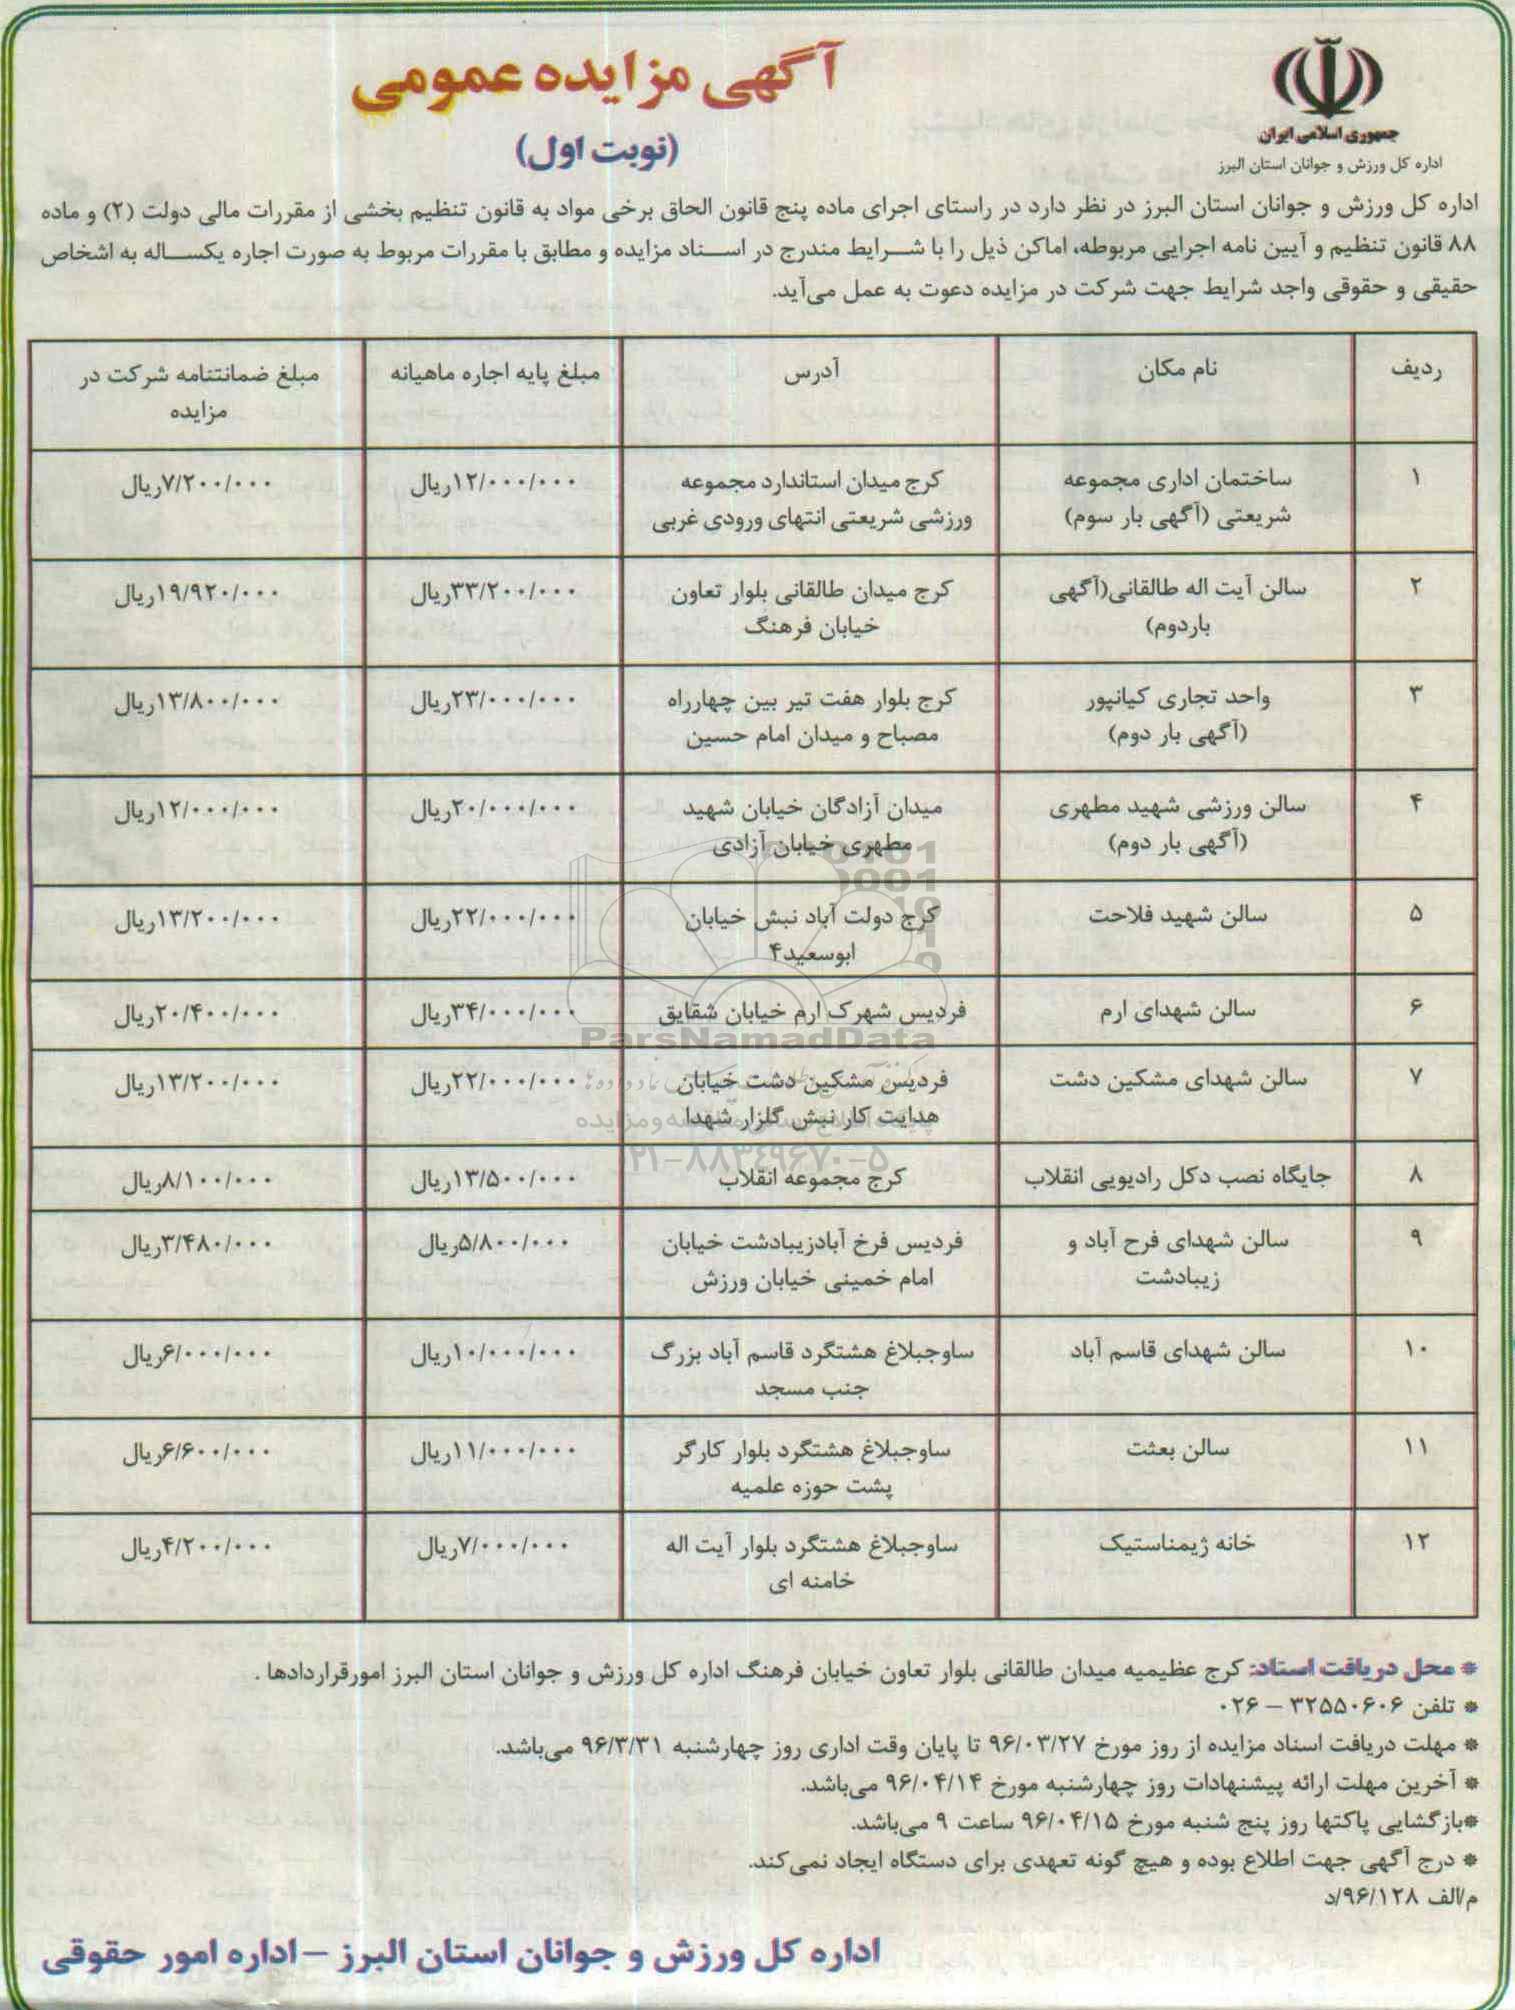 جمهوری اسلامی ایران
اداره کل ورزش و جوانان استان البرز
آگهی مزایده عمومی
(نوبت اول)
اداره کل ورزش و جوانان استان البرز در نظر دارد در راستای اجرای ماده پنج قانون الحاق برخی مواد به قانون تنظیم بخشی از مقررات مالی دولت (۲) و ماده
۸۸ قانون تنظیم و آیین نامه اجرایی مربوطه، اماکن ذیل را با شرایط مندرج در اسناد مزایده و مطابق با مقررات مربوط به صورت اجاره یکساله به اشخاص
حقیقی و حقوقی واجد شرایط جهت شرکت در مزایده دعوت به عمل می‌آید.
ردیف | نام مکان | آدرس | مبلغ پایه اجاره ماهیانه | مبلغ ضمانتنامه شرکت در
مزایده
۱ | ساختمان اداری مجموعه | کرج میدان استاندارد مجموعه | ۱۲/۰۰۰/۰۰۰ریال | ۷/۲۰۰/۰۰۰ریال
شریعتی (آگهی بار سوم) | ورزشی شریعتی انتهای ورودی غربی
۲ | سالن آیت اله طالقانی(آگهی | کرج میدان طالقانی بلوار تعاون | ۳۳/۲۰۰/۰۰۰ریال | ۱۹/۹۲۰/۰۰۰ریال
باردوم) | خیابان فرهنگ
۳ | واحد تجاری کیانپور | کرج بلوار هفت تیر بین چهارراه | ۲۳/۰۰۰/۰۰۰ریال | ۱۳/۸۰۰/۰۰۰ریال
(آگهی بار دوم) | مصباح و میدان امام حسین
۴ | سالن ورزشی شهید مطهری | میدان آزادگان خیابان شهید | ۲۰/۰۰۰/۰۰۰ریال | ۱۲/۰۰۰/۰۰۰ریال
(آگهی بار دوم) | مطهری خیابان آزادی
۵ | سالن شهید فلاحت | کرج دولت آباد نبش خیابان | ۲۲/۰۰۰/۰۰۰ریال | ۱۳/۲۰۰/۰۰۰ریال
ابوسعید۴
۶ | سالن شهدای ارم | فردیس شهرک ارم خیابان شقایق | ۳۴/۰۰۰/۰۰۰ریال | ۲۰/۴۰۰/۰۰۰ریال
ParsNamadData
۷ | سالن شهدای مشکین دشت | فردیس مشکین دشت خیابان | ۲۲/۰۰۰/۰۰۰ریال | ۱۳/۲۰۰/۰۰۰ریال
هدایت کار نبش گلزار شهدا
۰۲۱-۸۸۳۴۹۶۷۰-۵
۸ | جایگاه نصب دکل رادیویی انقلاب | کرج مجموعه انقلاب | ۱۳/۵۰۰/۰۰۰ریال | ۸/۱۰۰/۰۰۰ریال
۹ | سالن شهدای فرح آباد و | فردیس فرخ آبادزیبادشت خیابان | ۵/۸۰۰/۰۰۰ریال | ۳/۴۸۰/۰۰۰ریال
زیبادشت | امام خمینی خیابان ورزش
۱۰ | سالن شهدای قاسم آباد | ساوجبلاغ هشتگرد قاسم آباد بزرگ | ۱۰/۰۰۰/۰۰۰ریال | ۶/۰۰۰/۰۰۰ریال
جنب مسجد
۱۱ | سالن بعثت | ساوجبلاغ هشتگرد بلوار کارگر | ۱۱/۰۰۰/۰۰۰ریال | ۶/۶۰۰/۰۰۰ریال
پشت حوزه علمیه
۱۲ | خانه ژیمناستیک | ساوجبلاغ هشتگرد بلوار آیت اله | ۷/۰۰۰/۰۰۰ریال | ۴/۲۰۰/۰۰۰ریال
خامنه ای
* محل دریافت اسناد: کرج عظیمیه میدان طالقانی بلوار تعاون خیابان فرهنگ اداره کل ورزش و جوانان استان البرز امورقراردادها .
* تلفن ۳۲۵۵۰۶۰۶ – ۰۲۶
* مهلت دریافت اسناد مزایده از روز مورخ ۹۶/۰۳/۲۷ تا پایان وقت اداری روز چهارشنبه ۹۶/۳/۳۱ می‌باشد.
* آخرین مهلت ارائه پیشنهادات روز چهارشنبه مورخ ۹۶/۰۴/۱۴ می‌باشد.
*بازگشایی پاکتها روز پنج شنبه مورخ ۹۶/۰۴/۱۵ ساعت ۹ می‌باشد.
* درج آگهی جهت اطلاع بوده و هیچ گونه تعهدی برای دستگاه ایجاد نمی‌کند.
م/الف ۹۶/۱۲۸/د
اداره کل ورزش و جوانان استان البرز – اداره امور حقوقی